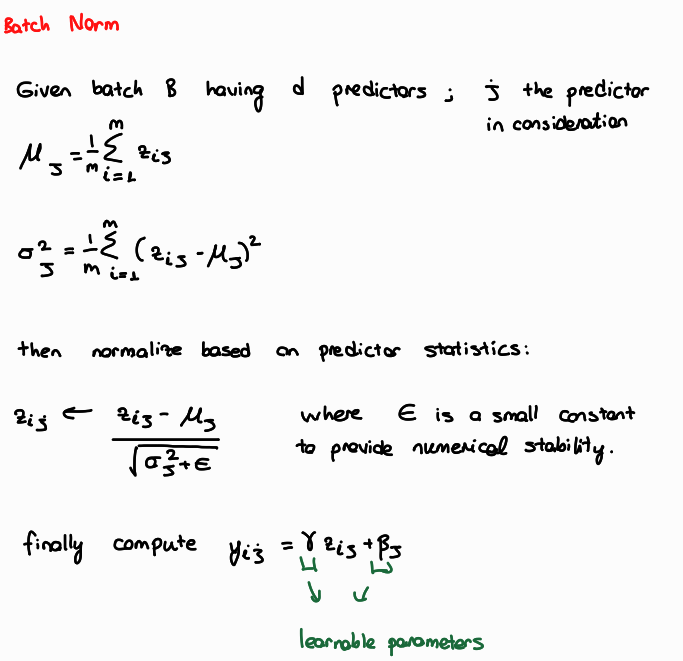 Batch Norm
Given batch B having d predictors ; j the predictor
in consideration
μ_j = 1/m Σ_{i=1}^{m} z_{ij}
σ²_j = 1/m Σ_{i=1}^{m} (z_{ij} - μ_j)²
then normalize based on predictor statistics:
z_{ij} ← (z_{ij} - μ_j) / √(σ²_j + ε) where ε is a small constant
to provide numerical stability.
finally compute y_{ij} = γ z_{ij} + β_j
learnable parameters